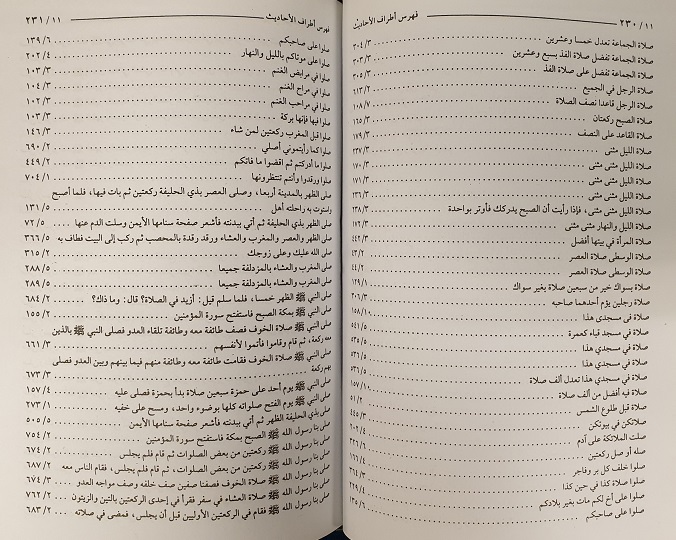 ٢٣٠/١١ فهرس أطراف الأحاديث
صلاة الجماعة تعدل خمسا وعشرين ٣٠٤/٣
صلاة الجماعة تفضل صلاة الفذ بسبع وعشرين ٣٠٣/٣
صلاة الجماعة تفضل على صلاة الفذ ٣٠٥/٣
صلاة الرجل في الجميع ٤١٣/٢
صلاة الرجل قاعدا نصف الصلاة ١٠٨/٧
صلاة الصبح ركعتان ١٦٥/٣
صلاة القاعد على النصف ١٧٩/٣
صلاة الليل مثنى ٢٣٧/٣
صلاة الليل مثنى مثنى ١٧٠/٣
صلاة الليل مثنى مثنى ١٧١/٣
صلاة الليل مثنى مثنى ١٣٦/٣
صلاة الليل مثنى مثنى، فإذا رأيت أن الصبح يدركك فأوتر بواحدة ١٣٨/٣
صلاة الليل والنهار مثنى مثنى ١٧٢/٣
صلاة المرأة في بيتها أفضل ٤٤٢/٣
صلاة الوسطى صلاة العصر ٤٣/٢
صلاة الوسطى صلاة العصر ٤٤/٢
صلاة بسواك خير من سبعين صلاة بغير سواك ١٢٩/١
صلاة رجلين يؤم أحدهما صاحبه ٣٠٦/٣
صلاة في مسجدي هذا ١٥٨/١٠
صلاة في مسجد قباء كعمرة ٥٤١/٥
صلاة في مسجدي هذا ٥٣٥/٥
صلاة في مسجدي هذا ٥٣٦/٥
صلاة في مسجدي هذا تعدل ألف صلاة ٥٣٦/٥
صلاة فيه أفضل من ألف صلاة ١٥٧/١٠
صلاة قبل طلوع الشمس ٥١/٢
صلاتكن في بيوتكن ٤٤٥/٣
صلت الملائكة على آدم ١٠٢/٤
صله أو صل ركعتين ٣٢٦/٦
صلوا خلف كل بر وفاجر ١٦٦/٤
صلوا صلاة كذا في حين كذا ٣٦٤/٣
صلوا على أخ لكم مات بغير بلادكم ١٢٩/٤
صلوا على صاحبكم ١٣٥/٦
فهرس أطراف الأحاديث ٢٣١/١١
صلوا على صاحبكم ١٣٩/٦
صلوا على موتاكم بالليل والنهار ٢٠٢/٤
صلوا في مرابض الغنم ١٠٣/٣
صلوا في مراح الغنم ١٠٤/٣
صلوا في مراحب الغنم ١٠٢/٣
صلوا فيها فإنها بركة ١٠٣/٣
صلوا قبل المغرب ركعتين لمن شاء ١٤٦/٣
صلوا كما رأيتموني أصلي ٦٩٠/٢
صلوا ما أدركتم ثم اقضوا ما فاتكم ٤٤٩/٢
صلوا ورقدوا وأنتم تنتظرونها ٧٠٤/١
صلى الظهر بالمدينة أربعا، وصلى العصر بذي الحليفة ركعتين ثم بات فيها، فلما أصبح
واستوت به راحلته أهل ١٣١/٥
صلى الظهر بذي الحليفة ثم أتي ببدنته فأشعر صفحة سنامها الأيمن وسلت الدم عنها ٧٢/٥
صلى الظهر والعصر والمغرب والعشاء ورقد رقدة بالمحصب ثم ركب إلى البيت فطاف به ٣٦٦/٥
صلى الله عليك وعلى زوجك ٣١٥/٢
صلى المغرب والعشاء بالمزدلفة جميعا ٢٨٨/٥
صلى المغرب والعشاء بالمزدلفة جميعا ٢٨٩/٥
صلى النبي ﷺ الظهر خمسا، فلما سلم قيل: أزيد في الصلاة؟ قال: وما ذاك؟ ٦٨٤/٢
صلى النبي ﷺ بمكة الصبح فاستفتح سورة المؤمنين ١٥٥/٢
صلى النبي ﷺ صلاة الخوف فصف طائفة معه وطائفة تلقاء العدو فصلى النبي ﷺ بالذين
معه ركعة، ثم قام وقاموا فأتموا لأنفسهم ٦٦١/٣
صلى النبي ﷺ صلاة الخوف فقامت طائفة معه وطائفة منهم فيما بينهم وبين العدو فصلى
بهم ركعة ٦٧٣/٣
صلى النبي ﷺ يوم أحد على حمزة سبعين صلاة بدأ بحمزة فصلى عليه ١٥٧/٤
صلى النبي ﷺ يوم الفتح صلواته كلها بوضوء واحد، ومسح على خفيه ٢٧٣/١
صلى بذي الحليفة الظهر ثم أتي ببدنته فأشعر صفحة سنامها الأيمن ٥٠٥/٥
صلى بنا رسول الله ﷺ الصبح بمكة فاستفتح سورة المؤمنين ٧٥٤/٢
صلى بنا رسول الله ﷺ ركعتين من بعض الصلوات، ثم قام فلم يجلس ٦٧٤/٢
صلى بنا رسول الله ﷺ ركعتين من بعض الصلوات، ثم قام فلم يجلس، فقام الناس معه ٦٨٧/٢
صلى بنا رسول الله ﷺ صلاة الخوف فصفنا صفين صف خلفه وصف مواجه العدو ٦٧٤/٣
صلى بنا رسول الله ﷺ صلاة العشاء في سفر فقرأ في إحدى الركعتين بالتين والزيتون ٧٦٢/٢
صلى بنا رسول الله ﷺ فقام في الركعتين الأوليين قبل أن يجلس، فمضى في صلاته ٦٨٣/٢